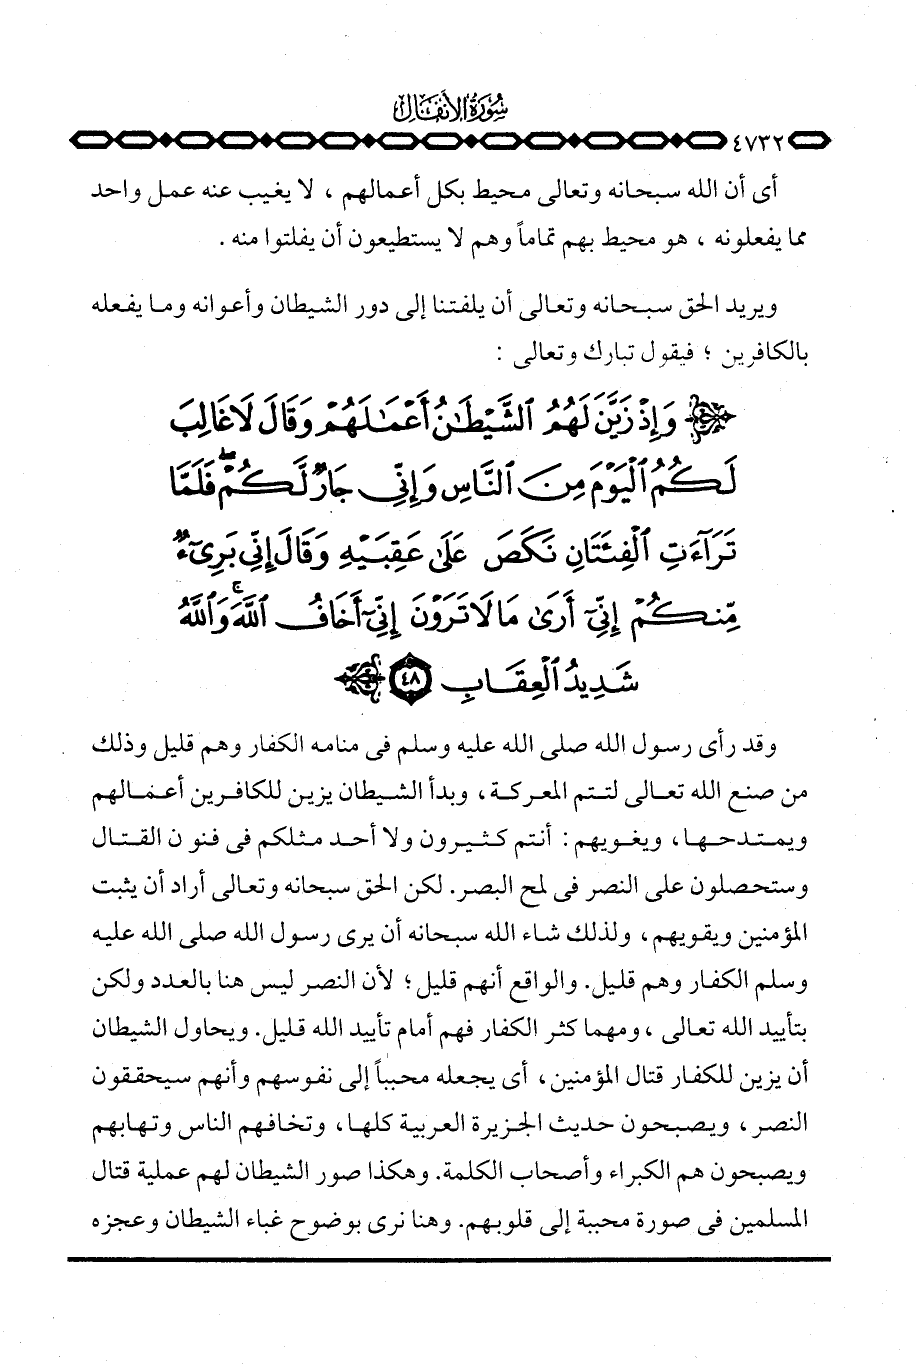 سُورَةُ الأَنفَالِ
٤٧٣٢
أى أن الله سبحانه وتعالى محيط بكل أعمالهم ، لا يغيب عنه عمل واحد
مما يفعلونه ، هو محيط بهم تماماً وهم لا يستطيعون أن يفلتوا منه .
ويريد الحق سبحانه وتعالى أن يلفتنا إلى دور الشيطان وأعوانه وما يفعله
بالكافرين ؛ فيقول تبارك وتعالى :
وَإِذْ زَيَّنَ لَهُمُ ٱلشَّيْطَٰنُ أَعْمَٰلَهُمْ وَقَالَ لَا غَالِبَ
لَكُمُ ٱلْيَوْمَ مِنَ ٱلنَّاسِ وَإِنِّى جَارٌ لَّكُمْ ۖ فَلَمَّا
تَرَآءَتِ ٱلْفِئَتَانِ نَكَصَ عَلَىٰ عَقِبَيْهِ وَقَالَ إِنِّى بَرِىٓءٌ
مِّنكُمْ إِنِّىٓ أَرَىٰ مَا لَا تَرَوْنَ إِنِّىٓ أَخَافُ ٱللَّهَ ۚ وَٱللَّهُ
شَدِيدُ ٱلْعِقَابِ ٤٨
وقد رأى رسول الله صلى الله عليه وسلم فى منامه الكفار وهم قليل وذلك
من صنع الله تعالى لتتم المعركة، وبدأ الشيطان يزين للكافرين أعمالهم
ويمتدحها، ويغويهم: أنتم كثيرون ولا أحد مثلكم فى فنون القتال
وستحصلون على النصر فى لمح البصر. لكن الحق سبحانه وتعالى أراد أن يثبت
المؤمنين ويقويهم، ولذلك شاء الله سبحانه أن يرى رسول الله صلى الله عليه
وسلم الكفار وهم قليل. والواقع أنهم قليل؛ لأن النصر ليس هنا بالعدد ولكن
بتأييد الله تعالى ، ومهما كثر الكفار فهم أمام تأييد الله قليل. ويحاول الشيطان
أن يزين للكفار قتال المؤمنين، أى يجعله محبباً إلى نفوسهم وأنهم سيحققون
النصر، ويصبحون حديث الجزيرة العربية كلها، وتخافهم الناس وتهابهم
ويصبحون هم الكبراء وأصحاب الكلمة. وهكذا صور الشيطان لهم عملية قتال
المسلمين فى صورة محببة إلى قلوبهم. وهنا نرى بوضوح غباء الشيطان وعجزه